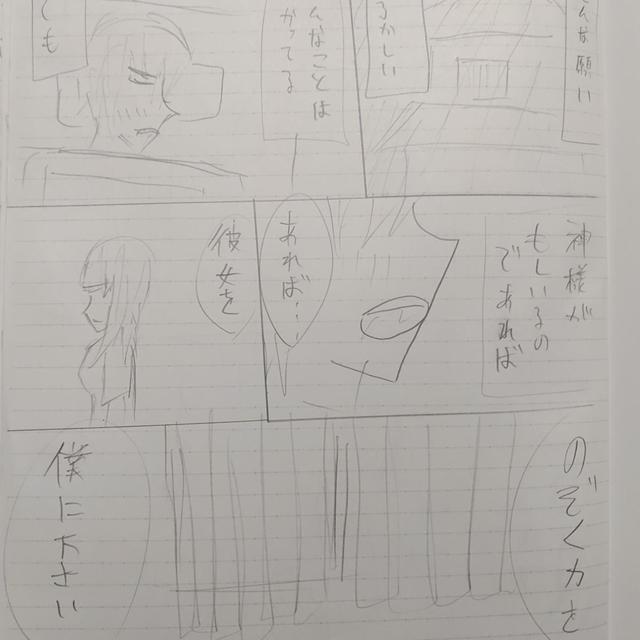 んな願い
るかしい
んなことは
かってる
ても
神様が
もしいるの
であれば
あれば・・
彼女を
のぞく力を
僕に下さい